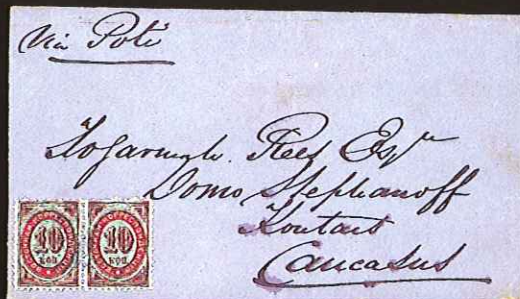 Via Poti
Rees Esqre
Domo Stephanoff
Koutais
Caucasus
10 10
КОП. КОП.